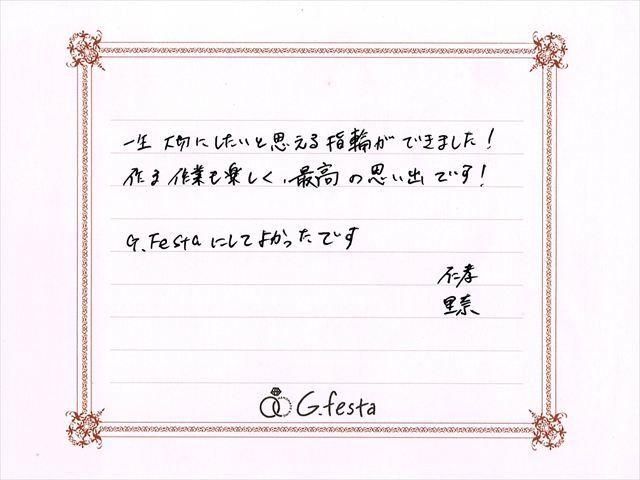 一生大切にしたいと思える指輪ができました！
作る作業も楽しく、最高の思い出です！
G.Festaにしてよかったです
仁孝
里奈
G.festa